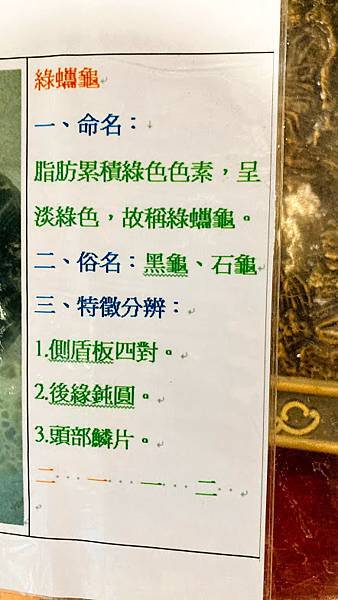 綠蠵龜
一、命名：
脂肪累積綠色色素，呈
淡綠色，故稱綠蠵龜。
二、俗名：黑龜、石龜
三、特徵分辨：
1.側盾板四對。
2.後緣鈍圓。
3.頭部鱗片。
二…一…一…二…